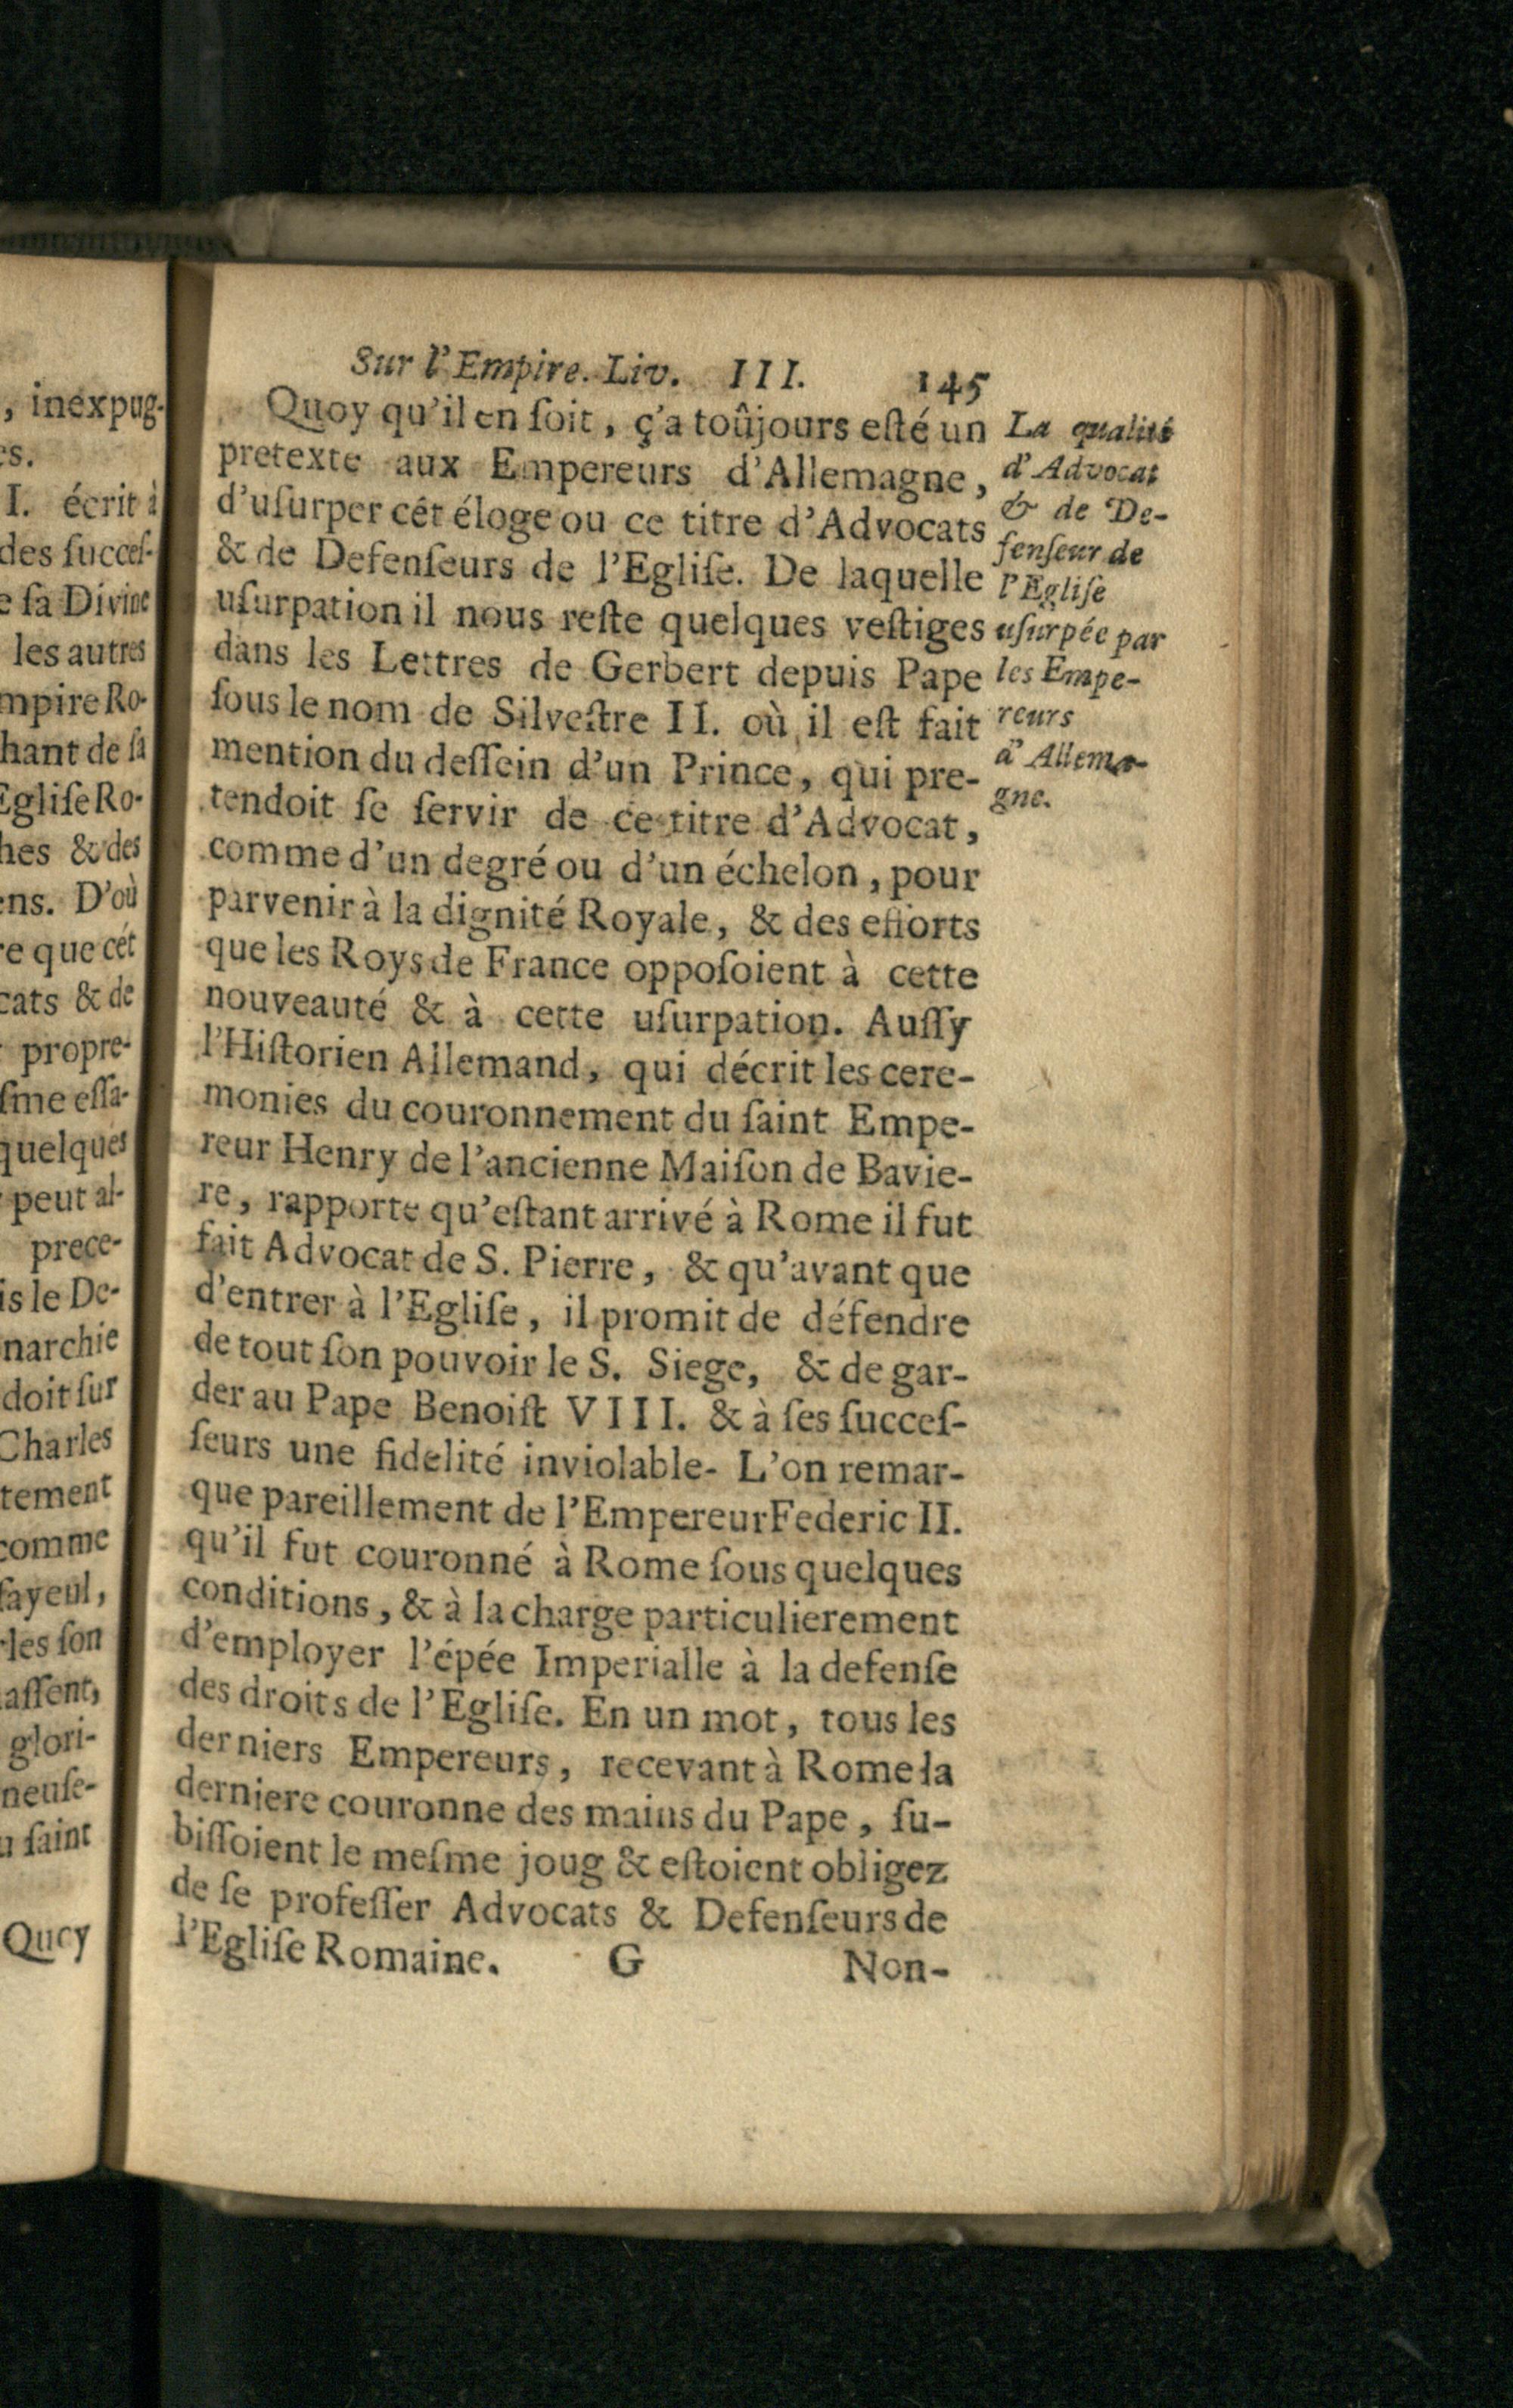 , inexpug-
es.
I. écrit à
des succeſ-
e ſa Divine
les autres
mpire Ro-
hant de ſa
Egliſe Ro-
hes & des
ens. D'où
re que cét
cats & de
propre-
ſme eſſa-
quelques
peut al-
prece-
is le De-
narchie
doit ſur
Charles
tement
comme
ſayeul,
les ſon
aſſent,
glori-
neuſe-
u ſaint
Quoy
Sur l'Empire. Liv. III. 145
Quoy qu'il en ſoit, ç'a toûjours eſté un
pretexte aux Empereurs d'Allemagne,
d'uſurper cét éloge ou ce titre d'Advocats
& de Defenſeurs de l'Egliſe. De laquelle
uſurpation il nous reſte quelques veſtiges
dans les Lettres de Gerbert depuis Pape
ſous le nom de Silveſtre II. où il eſt fait
mention du deſſein d'un Prince, qui pre-
tendoit ſe ſervir de ce titre d'Advocat,
comme d'un degré ou d'un échelon, pour
parvenir à la dignité Royale, & des efforts
que les Roys de France oppoſoient à cette
nouveauté & à cette uſurpation. Auſſy
l'Hiſtorien Allemand, qui décrit les cere-
monies du couronnement du ſaint Empe-
reur Henry de l'ancienne Maiſon de Bavie-
re, rapporte qu'eſtant arrivé à Rome il fut
fait Advocat de S. Pierre, & qu'avant que
d'entrer à l'Egliſe, il promit de défendre
de tout ſon pouvoir le S. Siege, & de gar-
der au Pape Benoiſt VIII. & à ſes ſucceſ-
ſeurs une fidelité inviolable- L'on remar-
que pareillement de l'Empereur Federic II.
qu'il fut couronné à Rome ſous quelques
conditions, & à la charge particulierement
d'employer l'épée Imperialle à la defenſe
des droits de l'Egliſe. En un mot, tous les
derniers Empereurs, recevant à Rome la
derniere couronne des mains du Pape, ſu-
biſſoient le meſme joug & eſtoient obligez
de ſe profeſſer Advocats & Defenſeurs de
l'Egliſe Romaine. G Non-
La qualité
d'Advocat
& de De-
fenſeur de
l'Egliſe
uſurpée par
les Empe-
reurs
d'Allema-
gne.